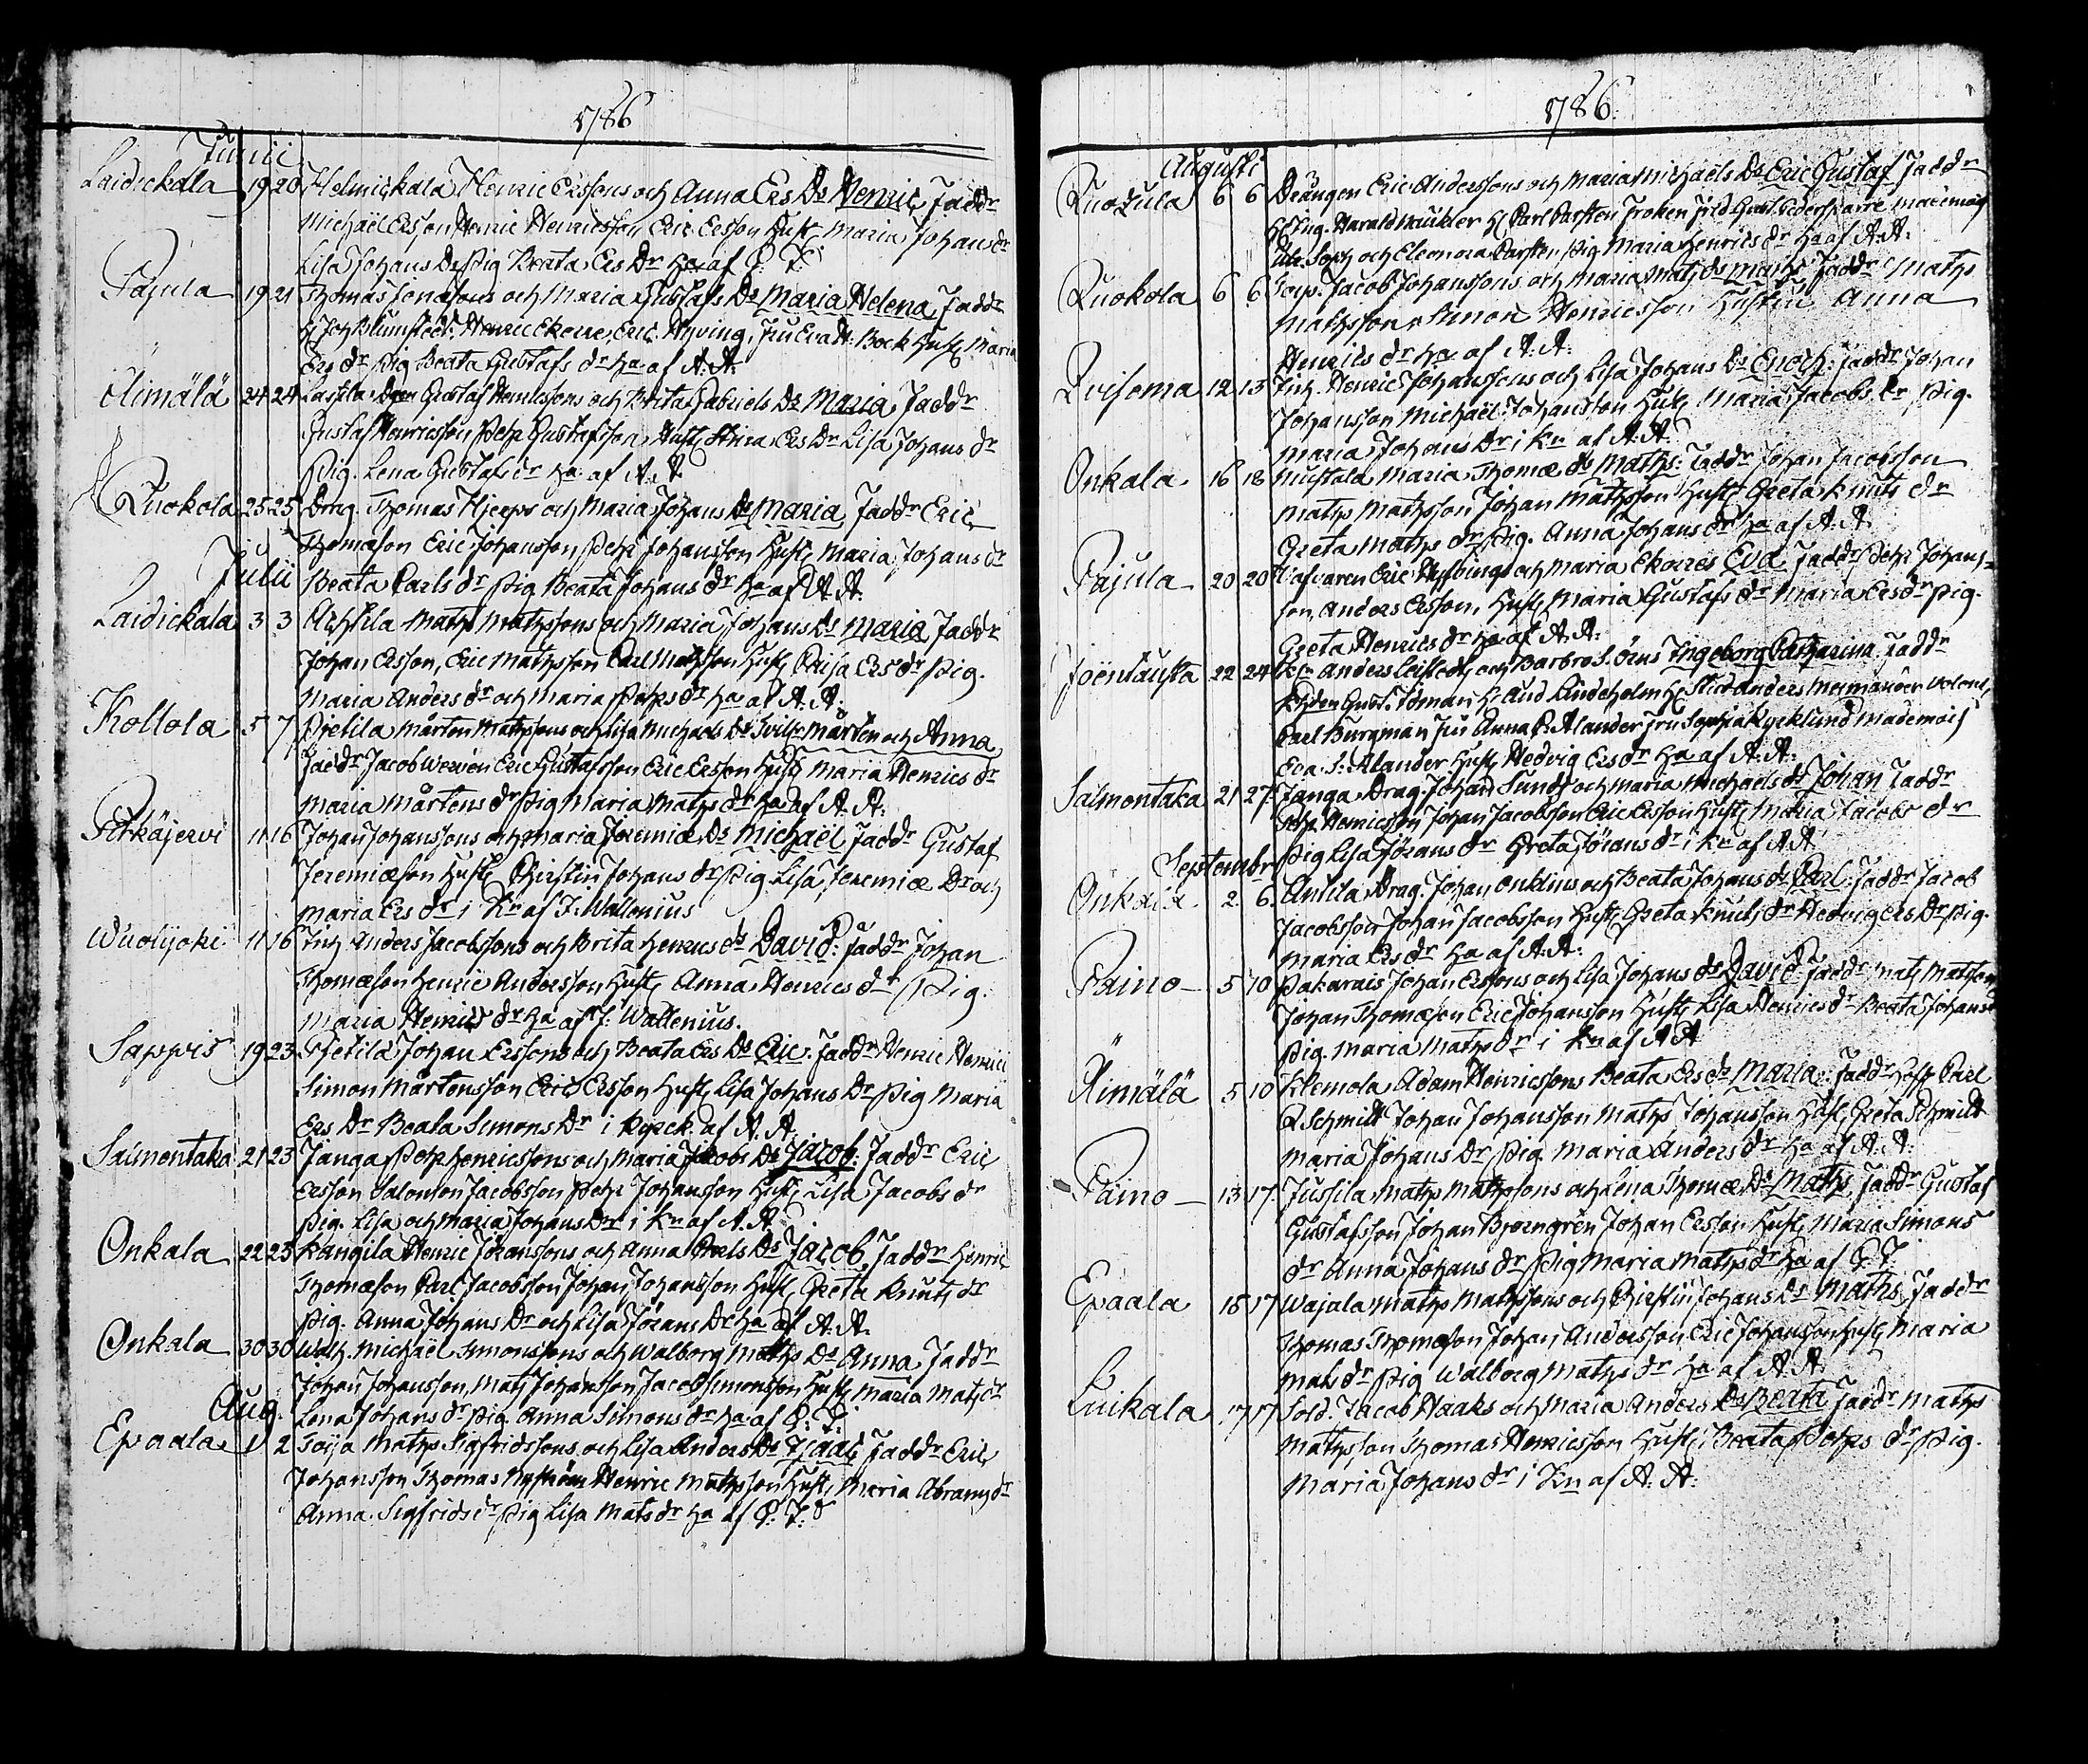 1786
Junii
Laidickala 19 20 Helmickala Henric Erssons och Anna Ers Dr Henric Faddr
Michaël Ersson Henric Henricsson Eric Ersson Hust. Maria Johans dr
Lisa Johans Dr Pig Beata Ers Dr ha af
Pajula 19 21 Thomas Jonæsons och Maria Gustafs Dr Maria Helena Faddr
H Joh Blumstedt. Henric Ekorre, Eric Hyving, Fru Eva H: Bock Hust. Maria
Ers dr Pig Beata Gustafs dr ha af A: A:
Äimälä 24 24 Lassila Dren Gustaf Henricssons och Brita Gabriels Dr Maria Faddr
Gustaf Henricsson Pehr Gustafsson Hust. Stina Ers Dr Lisa Johans dr
Pig. Lena Gustafs dr ha af A: A
Ruokola 25 25 Drag. Thomas Hjerps och Maria Johans Dr Maria Faddr Eric
Thomæson Eric Johansson Pehr Johansson Hust. Maria Johans dr
Julii Beata Carls dr Pig Beata Johans dr ha af A: A:
Laidickala 3 3 Achtila Maths Mathssons och Maria Johans dr Maria Faddr
Johan Ersson, Eric Mathsson Carl Mathsson Hust. Caisa Ers dr Pig.
Maria Anders dr och Maria Pehrs dr ha af A: A:
Kollola 5 7 Pietila Mårten Mathssons och Lisa Michaels Dr Tvill. Mårten och Anna
Faddr Jacob Werwen Eric Gustafsson Eric Ersson Hust. Maria Henrics dr
Maria Mårtens dr Pig Maria Maths dr ha af A: A:
Pitkäjervi 11 16 Johan Johanssons och Maria Jeremiæ Dr Michaël Faddr Gustaf
Jeremiæson Hust. Christin Johans dr Pig Lisa Jeremiæ Dr och
Maria Ers dr i Kn af J: Wallenius
Wuolijoki 11 16 Anders Jacobssons och Brita Henrics dr David: Faddr Johan
Thomæson Henric Andersson Hust. Anna Henrics dr Pig.
Maria Henrics dr ha af J: Wallenius.
Sappis 19 23 Pietilä Johan Erssons och Beata Ers Dr Eric: Faddr Henric Henrici
Simon Mårtensson Eric Ersson Hust. Lisa Johans Dr Pig Maria
Ers Dr Beata Simons Dr i Kyrck. af A: A.
Salmentaka 21 23 Janga Pehr Henricssons och Maria Jacobs Dr Jacob: Faddr Eric
Ersson Salomon Jacobsson Pehr Johansson Hust. Lisa Jacobs dr
Pig. Lisa och Maria Johans Dr i Kn af A: A
Onkala 22 23 Kangila Henric Jöranssons och Anna Carls Dr Jacob, Faddr Henric
Thomæson Carl Jacobsson Johan Johansson Hust. Greta Knuts dr
Pig. Anna Johans Dr och Lisa Jörans Dr ha af A: A:
Onkala 30 30 Michaël Simonssons och Walborg Maths Dr Anna Faddr
Johan Johansson, Mats Johansson Jacob Simonsson Hust. Maria Mats dr
Aug. Lena Johans dr Pig. Anna Simons dr ha af
Epaala 1 2 Toija Maths Sigfridssons och Lisa Anders Dr Isaac, Faddr Eric
Johansson Thomas Nyström Henric Mathsson Hust. Maria Abrams dr
Anna Sigfrids dr Pig Lisa Mats dr ha af
1786.
Augusti
6 6 Drängen Eric Anderssons och Maria Michaëls Dr Eric Gustaf Faddr
H Fug. Harald H Carl Carsten Froken Gust. Cederskarre Mademois
Ulr. Soph och Eleonora Carsten, Pig Maria Henrics dr ha af A: A.
Ruokola 6 6 Torp. Jacob Johanssons och Maria Mats dr Maths: Faddr Maths
Mathsson Simon Henricsson Hustru Anna
Henrics dr ha af A: A:
12 13 Henric Johanssons och Lisa Johans Dr Enoch. Faddr Johan
Johansson Michaël Johansson Hust. Maria Jacobs dr Pig.
Maria Johans Dr i Kn af A: A:
Onkala 16 18 Mustala Maria Thomæ dr Maths: Faddr Johan Jacobsson
Maths Mathsson Johan Mathsson Hust. Greta Knuts dr
Greta Maths dr Pig. Anna Johans dr ha af A: A.
Pajula 20 20 Eric Hyvings och Maria Ekorres Eva Faddr Pehr Johans-
son, Anders Ersson, Hust. Maria Gustafs dr Maria Ers dr Pig.
Greta Henrics dr ha af A: A:
Joëntausta 22 24 Anders Leistedts och Barbro Ingeborg Catharina. Faddr
Gust. Idman H Aud Lindeholm H Stud Anders Mermander
Carl Burgman Fru Anna C: Alander Fru Sophia Kycklund Mademois
Eva S: Alander Hust. Hedvig Ers dr ha af A: A:
Salmentaka 21 27. Janga Drag. Johan Sunds och Maria Michaels dr Johan Faddr
Pehr Henricsson Johan Jacobsson Eric Ersson Hust. Maria Jacobs dr
Septembr. Pig Lisa Jörans dr Greta Jörans dr i Kn af A: A
Onkala 2 6. Antila Drag. Johan Onklins och Beata Johans dr Carl: Faddr Jacob
Jacobsson Johan Jacobsson Hust. Greta Knuts dr Hedvig Ers Dr Pig.
Maria Ers dr ha af A: A:
Paino 5 10 Pakarais Johan Erssons och Lisa Johans dr David. Faddr Mats Matsson
Johan Thomæson Eric Johansson Hust. Lisa Henrics dr Beata Johans
Pig. Maria Maths dr i Kn af A: A
Äimälä 5 10 Klemola Adam Henricssons Beata Ers dr Maria: Faddr Carl
Schmidt Johan Johansson Maths Johansson Hust. Greta Schmidt
Maria Johans Dr Pig. Maria Anders dr ha af A: A:
Paino 13 17. Jussila Maths Mathssons och Lena Thomæ Dr Maths, Faddr Gustaf
Gustafsson Johan Bjorngrén Johan Ersson Hust. Maria Simons
dr Anna Johans dr Pig Maria Maths dr ha af
Epaala 15 17 Wajala Maths Mathssons och Christin Johans Dr Maths, Faddr
Thomas Thomæson Johan Andersson Eric Johansson Hust. Maria
Mats dr Pig Walborg Maths dr ha af A: A:
Luikala 17 17 Sold. Jacob Haaks och Maria Anders Dr Beata Faddr Maths
Mathsson Thomas Henricsson Hust. Beata Pehrs dr Pig.
Maria Johans dr i Kn af A: A: